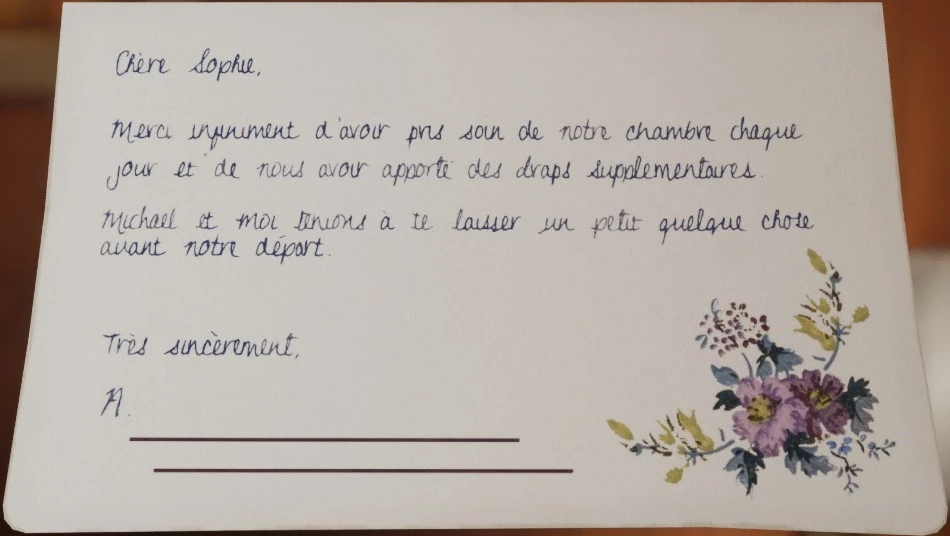 Chère Sophie,
Merci infiniment d'avoir pris soin de notre chambre chaque
jour et de nous avoir apporté des draps supplémentaires.
Michael et moi tenions à te laisser un petit quelque chose
avant notre départ.
Très sincèrement,
A.